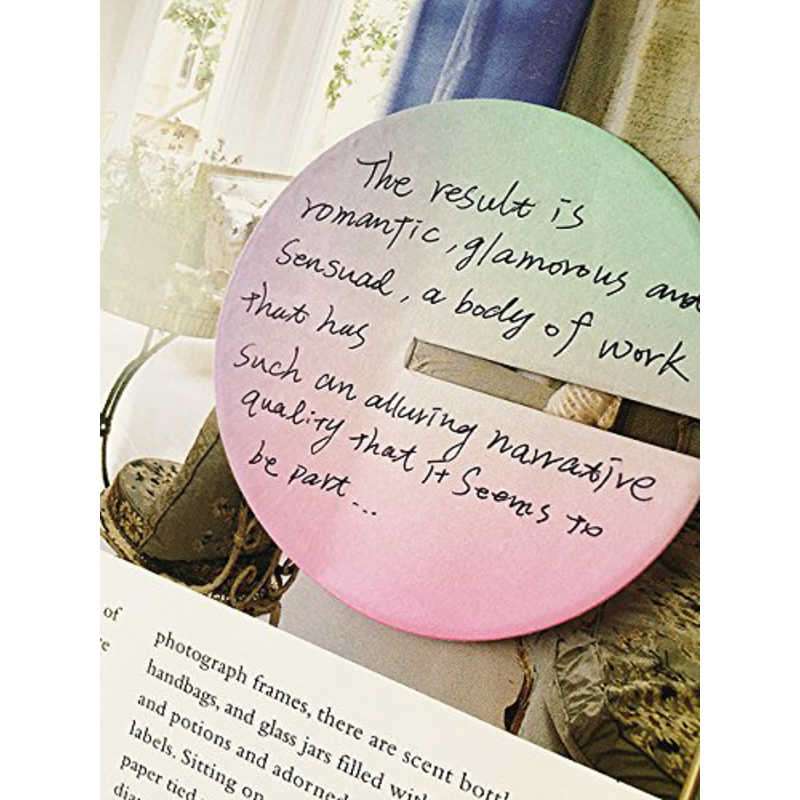 The result is
romantic, glamorous and
Sensual, a body of work
that has
Such an alluring narrative
quality that it Seems to
be part...
of
photograph frames, there are scent bottl
handbags, and glass jars filled with
and potions and adorned
labels. Sitting on
paper tied